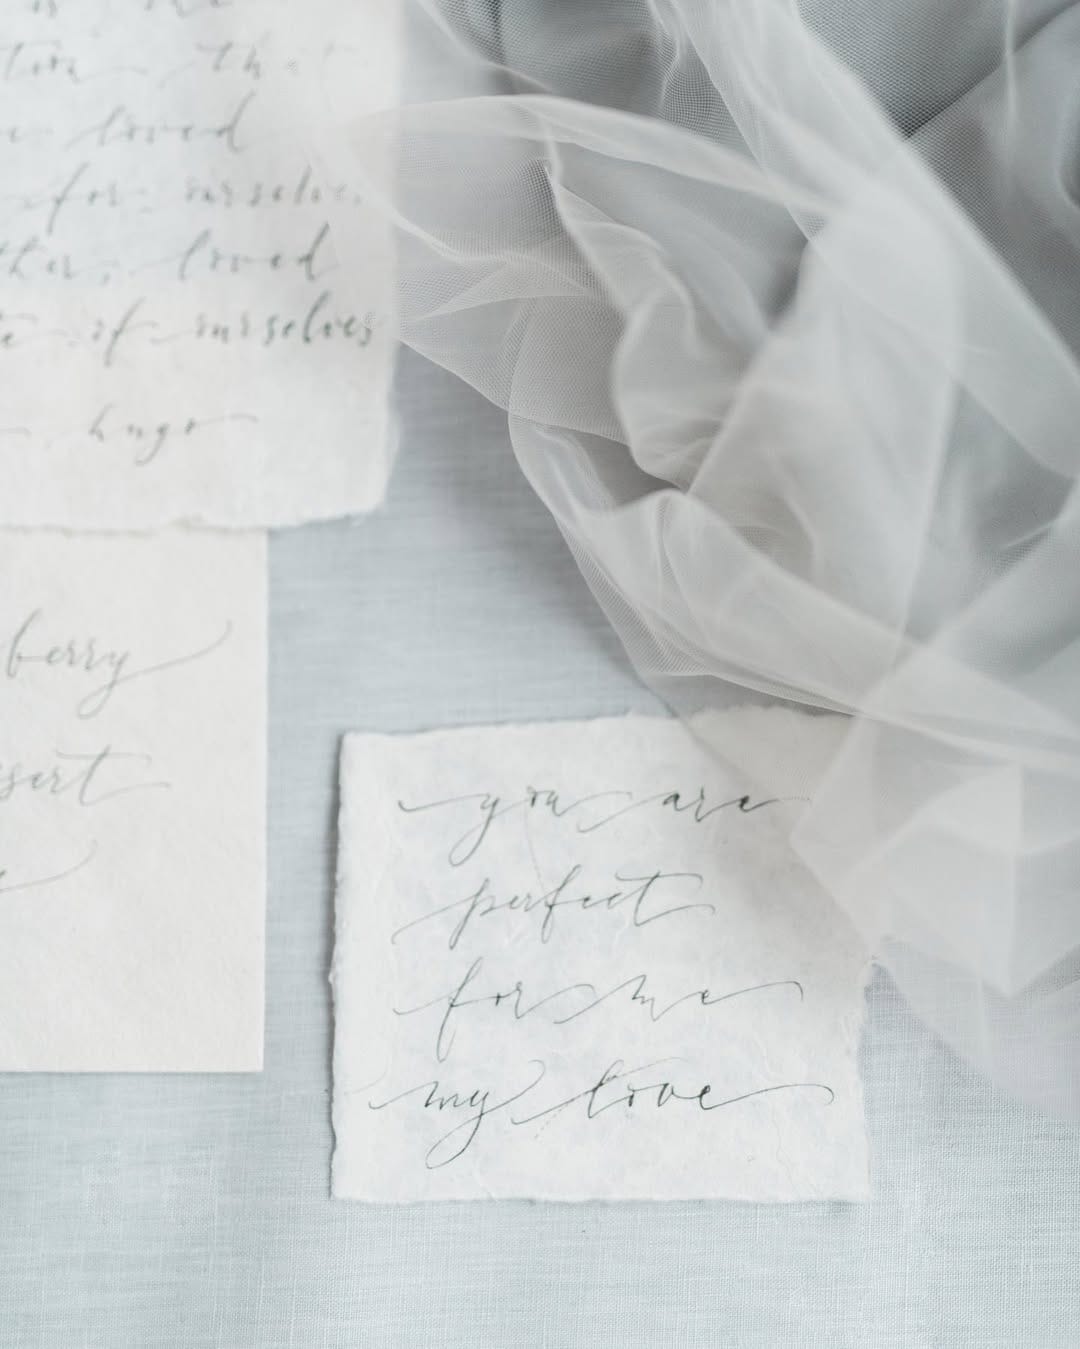 is the
th
loved
for ourselves
loved
of ourselves
hugo
berry
you are
perfect
for me
my love